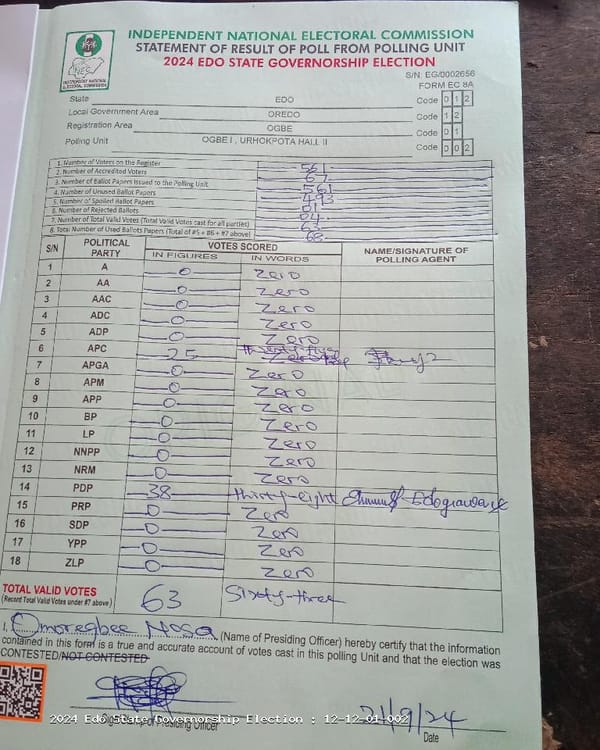 INDEPENDENT NATIONAL ELECTORAL COMMISSION
STATEMENT OF RESULT OF POLL FROM POLLING UNIT
2024 EDO STATE GOVERNORSHIP ELECTION
S/N EG/0002656
FORM EC 8A
State EDO Code 0 1 2
Local Government Area OREDO Code 1 2
Registration Area OGBE Code 0 1
Polling Unit OGBE I , URHOKPOTA HALL II Code 0 0 2
1. Number of Voters on the Register 561
2. Number of Accredited Voters 67
3. Number of Ballot Papers Issued to the Polling Unit 561
4. Number of Unused Ballot Papers 493
5. Number of Spoiled Ballot Papers 01
6. Number of Rejected Ballots 04
7. Number of Total Valid Votes (Total Valid Votes cast for all parties) 63
8. Total Number of Used Ballots Papers (Total of #5 + #6 + #7 above) 68
S/N POLITICAL PARTY VOTES SCORED NAME/SIGNATURE OF POLLING AGENT
IN FIGURES IN WORDS
1 A 0 Zero
2 AA 0 Zero
3 AAC 0 Zero
4 ADC 0 Zero
5 ADP 0 Zero
6 APC 25
7 APGA 0 Zero
8 APM 0 Zero
9 APP 0 Zero
10 BP 0 Zero
11 LP 0 Zero
12 NNPP 0 Zero
13 NRM 0 Zero
14 PDP 38 thirty-eight
15 PRP 0 Zero
16 SDP 0 Zero
17 YPP 0 Zero
18 ZLP 0 Zero
TOTAL VALID VOTES 63 Sixty-three
(Record Total Valid Votes under #7 above)
I, Omoregbee Nosa (Name of Presiding Officer) hereby certify that the information
contained in this form is a true and accurate account of votes cast in this polling Unit and that the election was
CONTESTED/NOT CONTESTED
21/9/24
of Presiding Officer Date
2024 Edo State Governorship Election : 12-12-01-002